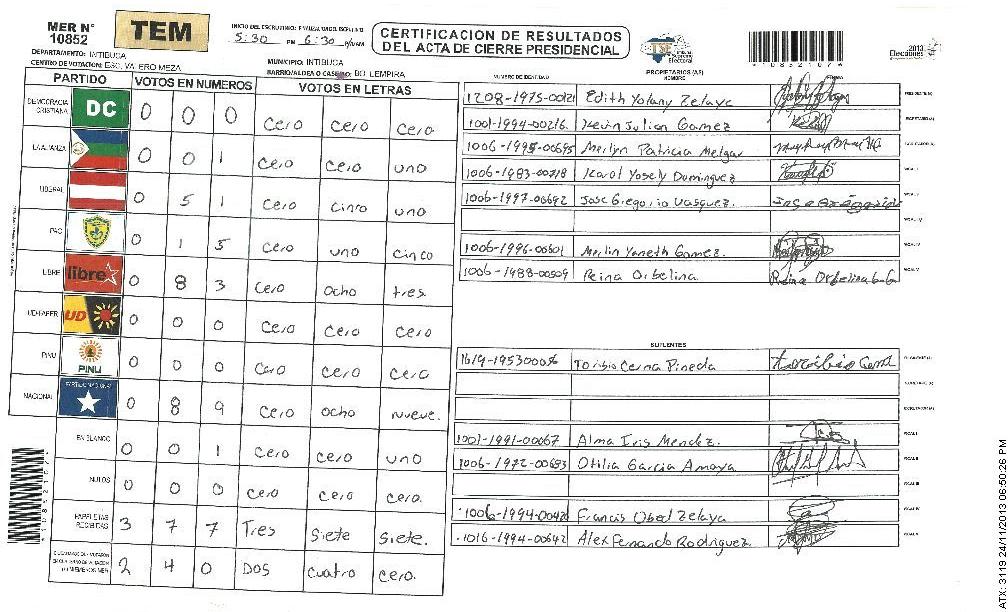 MER N° 10852
TEM
5:30 PM 6:30
CERTIFICACION DE RESULTADOS
DEL ACTA DE CIERRE PRESIDENCIAL
TSE Tribunal Supremo Electoral
2013 Elecciones
DEPARTAMENTO: INTIBUCA
MUNICIPIO: INTIBUCA
CENTRO DE VOTACION: ESC. VALERO MEZA
BARRIO/ALDEA O CASERIO: BO. LEMPIRA
PARTIDO VOTOS EN NUMEROS VOTOS EN LETRAS
DEMOCRACIA CRISTIANA DC 0 0 0 Cero Cero Cero
LA ALIANZA 0 0 1 Cero Cero uno
LIBERAL 0 5 1 Cero Cinco uno
PAC 0 1 5 Cero uno cinco
LIBRE libre 0 8 3 Cero ocho tres.
UD-FAPER UD 0 0 0 Cero Cero Cero
PINU PINU 0 0 0 Cero Cero Cero
NACIONAL PARTIDO NACIONAL 0 8 9 Cero ocho nueve.
EN BLANCO 0 0 1 Cero Cero uno
NULOS 0 0 0 Cero Cero Cero.
PAPELETAS RECIBIDAS 3 7 7 Tres Siete Siete.
2 4 0 DOS cuatro Cero.
NUMERO DE IDENTIDAD PROPIETARIOS (AS) NOMBRE FIRMA
1208-1975-00121 Edith Yolany Zelaye
1001-1994-00216. Kevin Julian Gomez
1006-1995-00695 Merlyn Patricia Melgar
1006-1983-00718 Karol Yosely Dominguez
1006-1997-00692 Jose Gregorio Vasquez.
1006-1996-00501 Merlin Yaneth Gomez.
1006-1988-00509 Reina Orbelina
SUPLENTES
1619-1953 00056 Toribio Cerna Pineda
1001-1991-00067 Alma Iris Mendez.
1006-1972-00583 Otilia Garcia Amaya
1006-1994-00420 Francis Obed Zelaya
1016-1994-00642 Alex Fernando Rodriguez
ATX: 3119 24/11/2013 06:50:26 PM